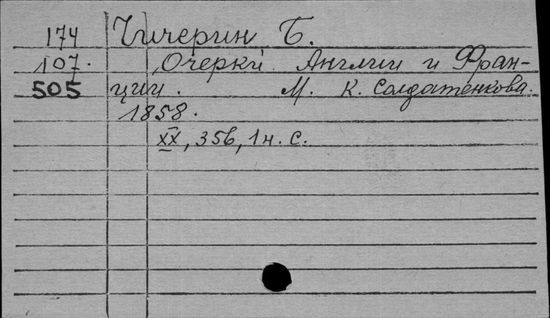 174 Чичерин Б.
107. Очерки Англии и Фран-
505 ции. М. К. Солдатенкова.
1858.
XX, 356, 1 н. с.